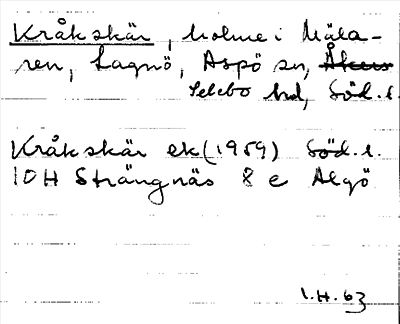 Kråkskär, holme i Mäla-
ren, Lagnö, Aspö sn, Åkers
Selebo hd, Söd. l.
Kråkskär ek (1959) Söd. l.
10H Strängnäs 8 e Algö
I.H. 63